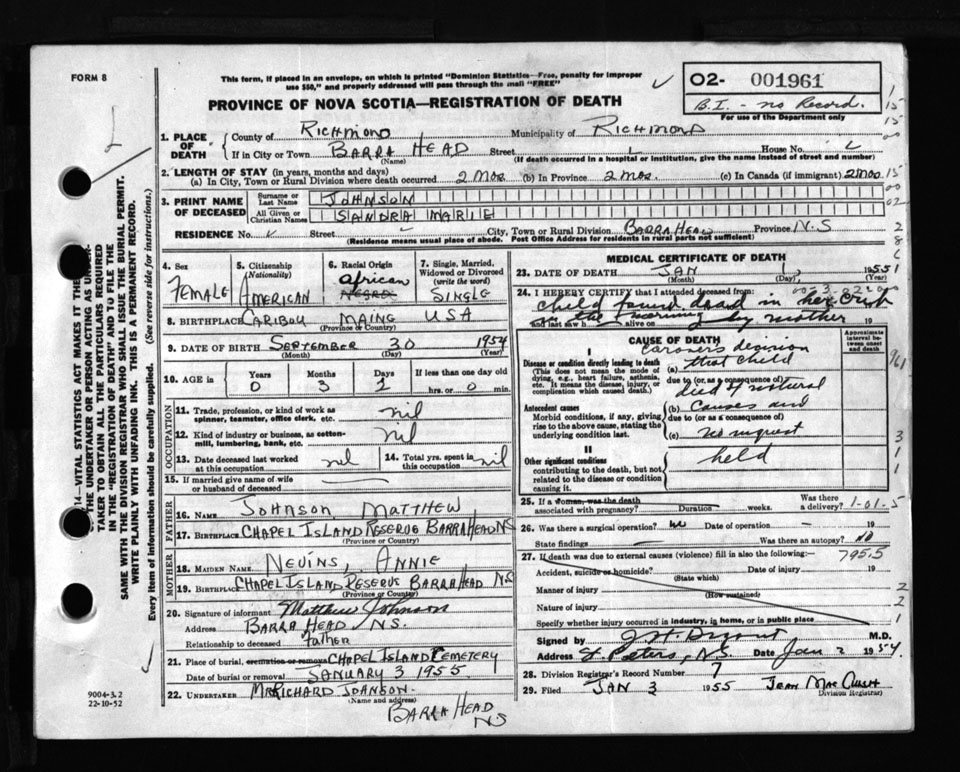 FORM 8
This form, if placed in an envelope, on which is printed "Dominion Statistics—Free, penalty for improper
use $50," and properly addressed will pass through the mail "FREE"
O2- 001961
B.I. - no Record.
For use of the Department only
PROVINCE OF NOVA SCOTIA—REGISTRATION OF DEATH
1. PLACE OF DEATH
County of RICHMOND Municipality of RICHMOND
If in City or Town BARRA HEAD Street House No.
(Name) (If death occurred in a hospital or institution, give the name instead of street and number)
2. LENGTH OF STAY (in years, months and days)
(a) In City, Town or Rural Division where death occurred 2 Mos. (b) In Province 2 mos. (c) In Canada (if immigrant) 2 mos
3. PRINT NAME OF DECEASED
Surname or Last Name JOHNSON
All Given or Christian Names SANDRA MARIE
RESIDENCE No. Street City, Town or Rural Division BARRA HEAD Province N.S
(Residence means usual place of abode. Post Office Address for residents in rural parts not sufficient)
4. Sex FEMALE
5. Citizenship (Nationality) AMERICAN
6. Racial Origin African NEGRO
7. Single, Married, Widowed or Divorced (write the word) SINGLE
8. BIRTHPLACE CARIBOU MAINE USA
(Province or Country)
9. DATE OF BIRTH SEPTEMBER 30 1954
(Month) (Day) (Year)
10. AGE in Years 0 Months 3 Days 2 If less than one day old hrs. or 0 min.
OCCUPATION
11. Trade, profession, or kind of work as spinner, teamster, office clerk, etc. nil
12. Kind of industry or business, as cotton-mill, lumbering, bank, etc. nil
13. Date deceased last worked at this occupation nil
14. Total yrs. spent in this occupation nil
15. If married give name of wife or husband of deceased
FATHER
16. NAME JOHNSON MATTHEW
17. BIRTHPLACE CHAPEL ISLAND RESERVE BARRA HEAD NS
(Province or Country)
MOTHER
18. MAIDEN NAME NEVINS, ANNIE
19. BIRTHPLACE CHAPEL ISLAND RESERVE BARRA HEAD NS
(Province or Country)
20. Signature of informant Matthew Johnson
Address BARRA HEAD NS.
Relationship to deceased Father
21. Place of burial, cremation or removal CHAPEL ISLAND CEMETERY
Date of burial or removal JANUARY 3 1955
22. UNDERTAKER MR RICHARD JOHNSON.
(Name and address)
BARRA HEAD
NS
MEDICAL CERTIFICATE OF DEATH
23. DATE OF DEATH JAN 1955
(Month) (Day) (Year)
24. I HEREBY CERTIFY that I attended deceased from:
child found dead in her crib
in the morning by mother
and last saw h alive on 19
CAUSE OF DEATH
Approximate interval between onset and death
I
Disease or condition directly leading to death
(This does not mean the mode of dying, e.g., heart failure, asthenia, etc. It means the disease, injury, or complication which caused death.)
Coroners decision
(a) that child
due to (or as a consequence of)
died of natural
Antecedent causes
Morbid conditions, if any, giving rise to the above cause, stating the underlying condition last.
(b) causes and
due to (or as a consequence of)
(c) no inquest
II
Other significant conditions
contributing to the death, but not related to the disease or condition causing it.
held
25. If a woman, was the death associated with pregnancy? Duration weeks. Was there a delivery? 1-01-5
26. Was there a surgical operation? no Date of operation — 19
State findings — Was there an autopsy? no
27. If death was due to external causes (violence) fill in also the following:—
7955
Accident, suicide or homicide? Date of injury 19
(State which)
Manner of injury
(How sustained)
Nature of injury
Specify whether injury occurred in industry, in home, or in public place
Signed by M.D.
Address St. Peters, N.S. Date Jan 2 1954.
28. Division Registrar's Record Number 7
29. Filed JAN 3 1955
Division Registrar
SAME WITH THE DIVISION REGISTRAR WHO SHALL ISSUE THE BURIAL PERMIT.
WRITE PLAINLY WITH UNFADING INK. THIS IS A PERMANENT RECORD.
Every item of information should be carefully supplied. (See reverse side for instructions.)
9004-3.2
22-10-52